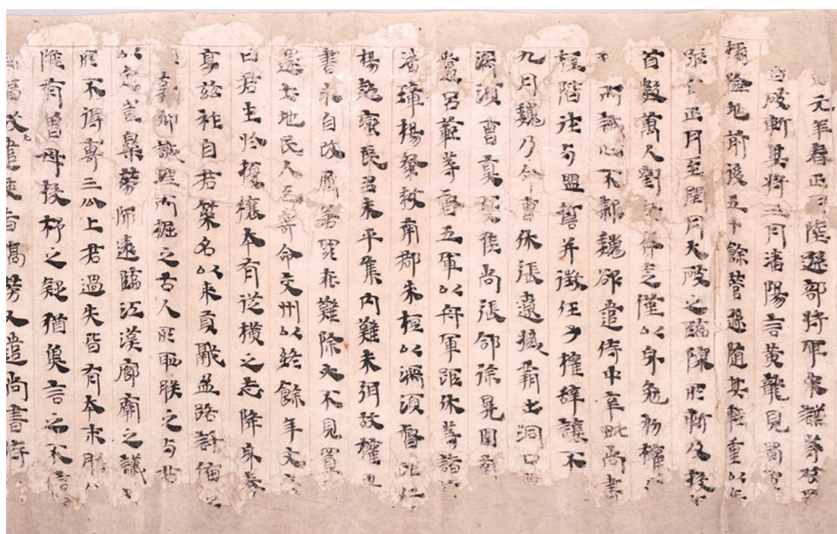 元年春正月陸遜部將軍宋謙等攻
破斬其將三月潘陽言黃龍見蜀
據險地前後五十餘營遜隨其輕重以兵
距自正月至閏月大破之臨陳所斬及投兵
首數萬人劉備奔走僅以身免初權
而誠心不款魏欲遣侍中辛毗尚書
桓階往與盟誓并徵任子權辭讓不
九月魏乃命曹休張遼臧霸出洞口
濡須曹真夏侯尚張郃徐晃圍南
遣呂範等督五軍以舟軍距休等諸
潘璋楊粲救南郡朱桓以濡須督距仁
楊越蠻民多未平集內難未弭故權卑
書求自改厲若罪在難除必不見置
還土地民人乞寄命交州以終餘年文
曰君生於擾攘本有從橫之志降身奉
享茲祚自君策名以來貢獻盈路討備
埋而掘之古人所恥朕之與君
以定豈樂勞師遠臨江漢廊廟之議
所不得專三公上君過失皆有本末朕以
雖有曾母投杼之疑猶冀言之不信
福故先遣使者犒勞又遣尚書侍